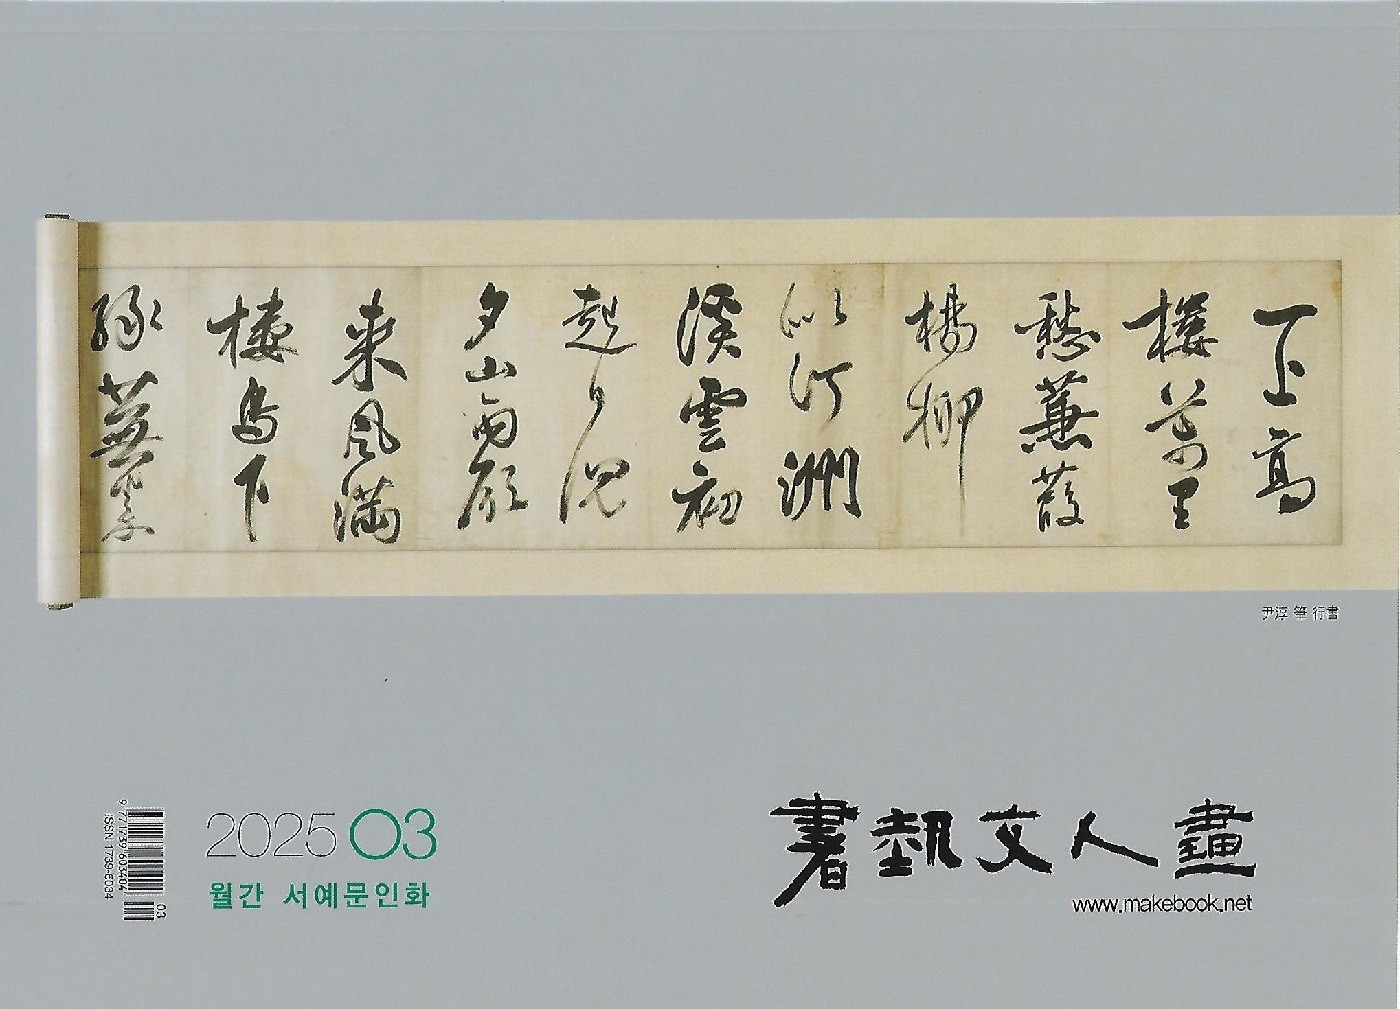 一上高
樓萬里
愁蒹葭
楊柳
似汀洲
溪雲初
起日沉
夕山雨欲
來風滿
樓鳥下
綠蕪秦
尹淳 筆 行書
書藝文人畫
www.makebook.net
2025 03
월간 서예문인화
9 771739 603404
03
ISSN 1739-6034